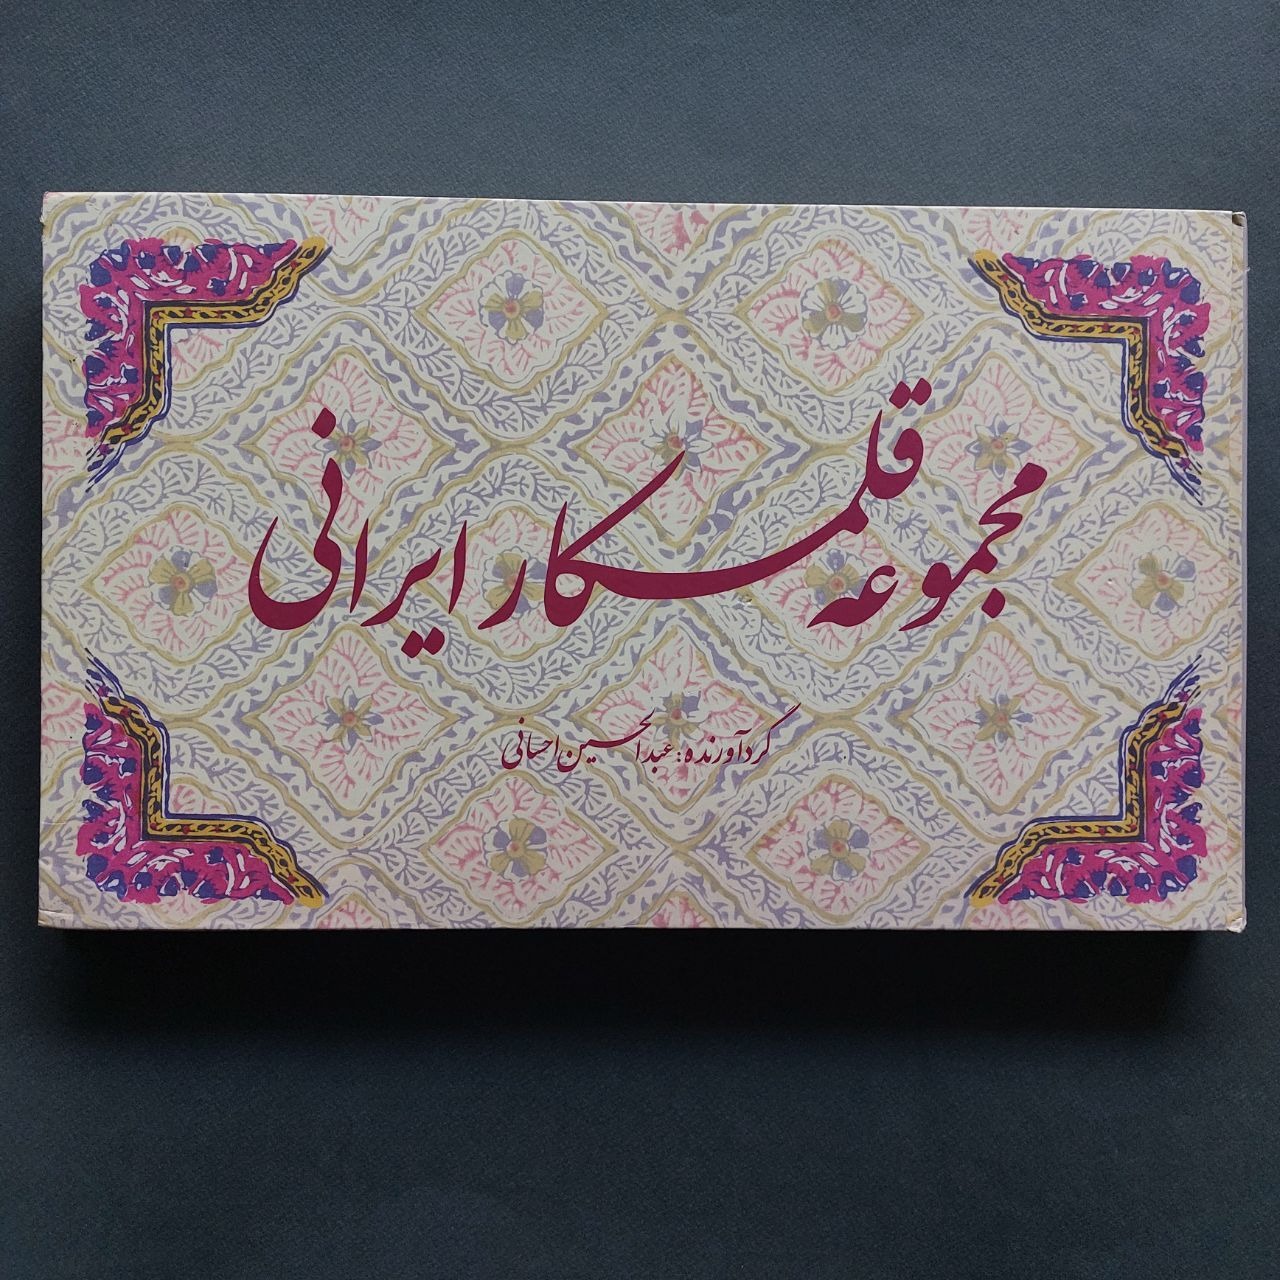 مجموعه قلمکار ایرانی
گردآورنده: عبدالحسین احسانی